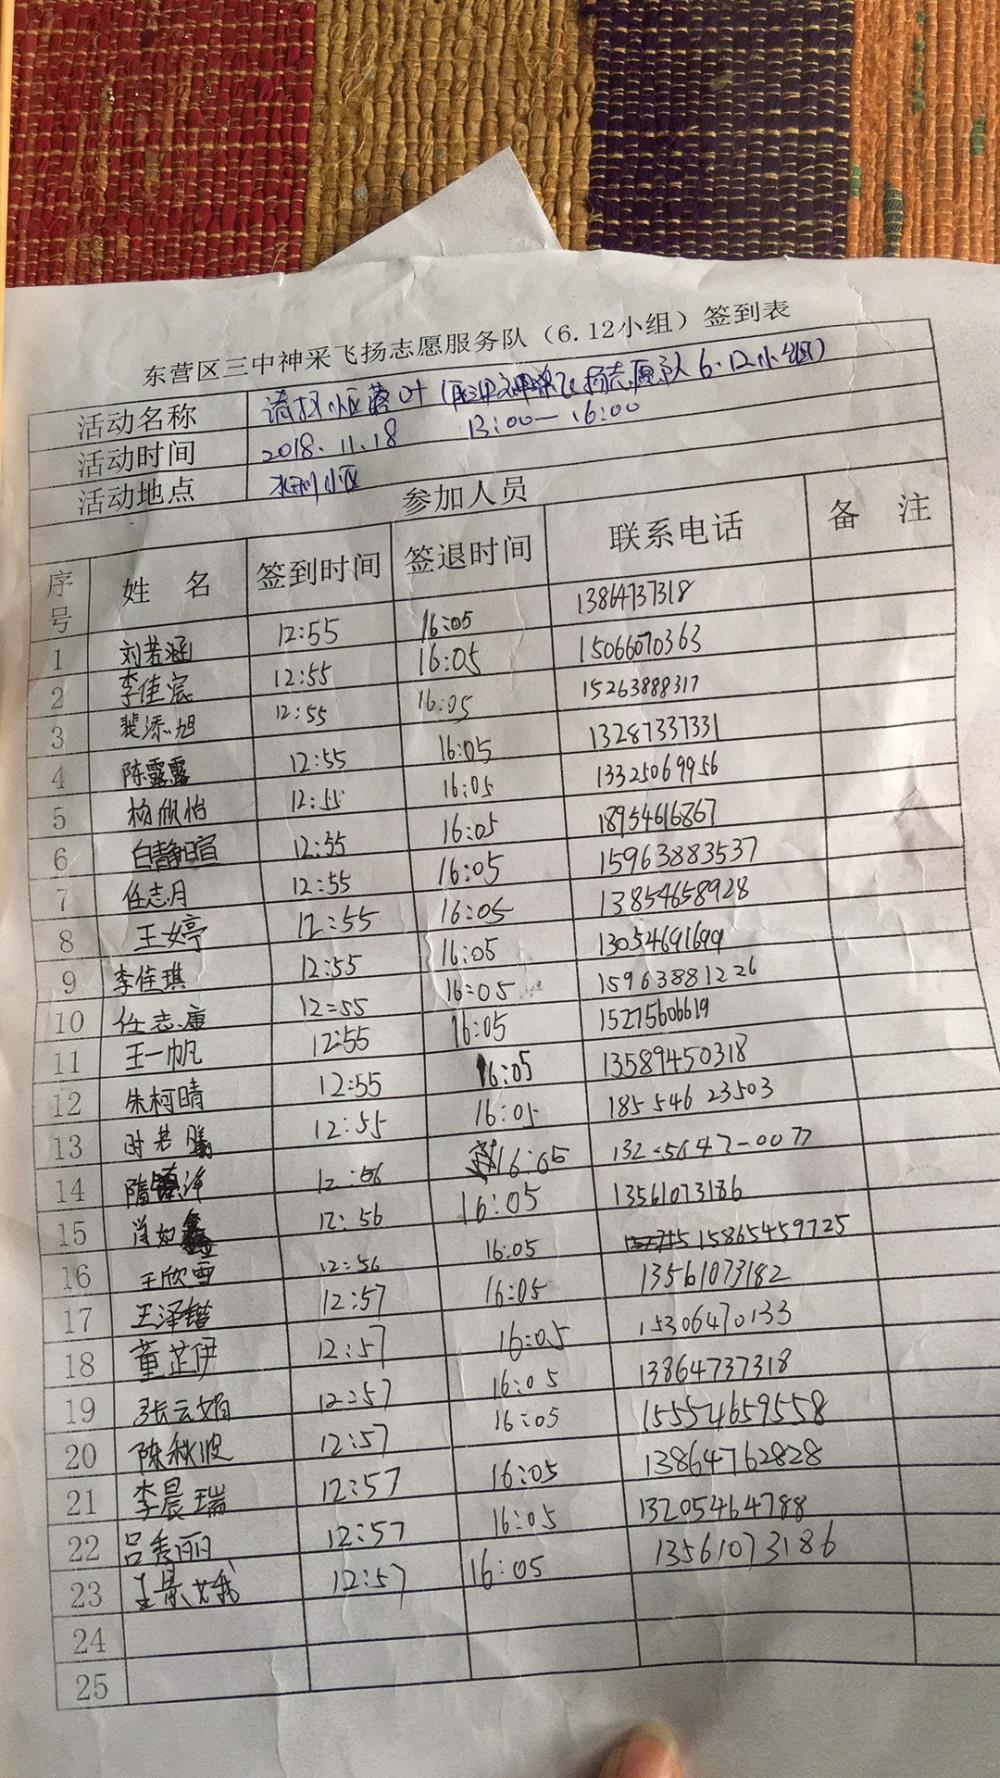 东营区三中神采飞扬志愿服务队（6.12小组）签到表
活动名称 清扫小区落叶（区三中神采飞扬志愿队6.12小组）
活动时间 2018.11.18 13:00—16:00
活动地点 水利小区
参加人员
序号 姓 名 签到时间 签退时间 联系电话 备 注
1 刘若涵 12:55 16:05 13864737318
2 李佳宸 12:55 16:05 15066070363
3 裴添旭 12:55 16:05 15263888317
4 陈露露 12:55 16:05 13287337331
5 杨欣怡 12:55 16:05 13325069956
6 白静暄 12:55 16:05 18954616867
7 任志月 12:55 16:05 15963883537
8 王婷 12:55 16:05 13854658928
9 李佳琪 12:55 16:05 13054691699
10 任志康 12:55 16:05 15963881226
11 王一帆 12:55 16:05 15275606619
12 朱柯晴 12:55 16:05 13589450318
13 时若 12:55 16:05 185 546 23503
14 隋 12:56 16:05 132-5647-0077
15 肖如鑫 12:56 16:05 13561073186
16 王欣雪 12:56 16:05 15865459725
17 王泽锴 12:57 16:05 13561073182
18 董芷伊 12:57 16:05 15306470133
19 张云娟 12:57 16:05 13864737318
20 陈秋波 12:57 16:05 15554659558
21 李晨瑞 12:57 16:05 13864762828
22 吕秀丽 12:57 16:05 13205464788
23 王景 12:57 16:05 13561073186
24
25